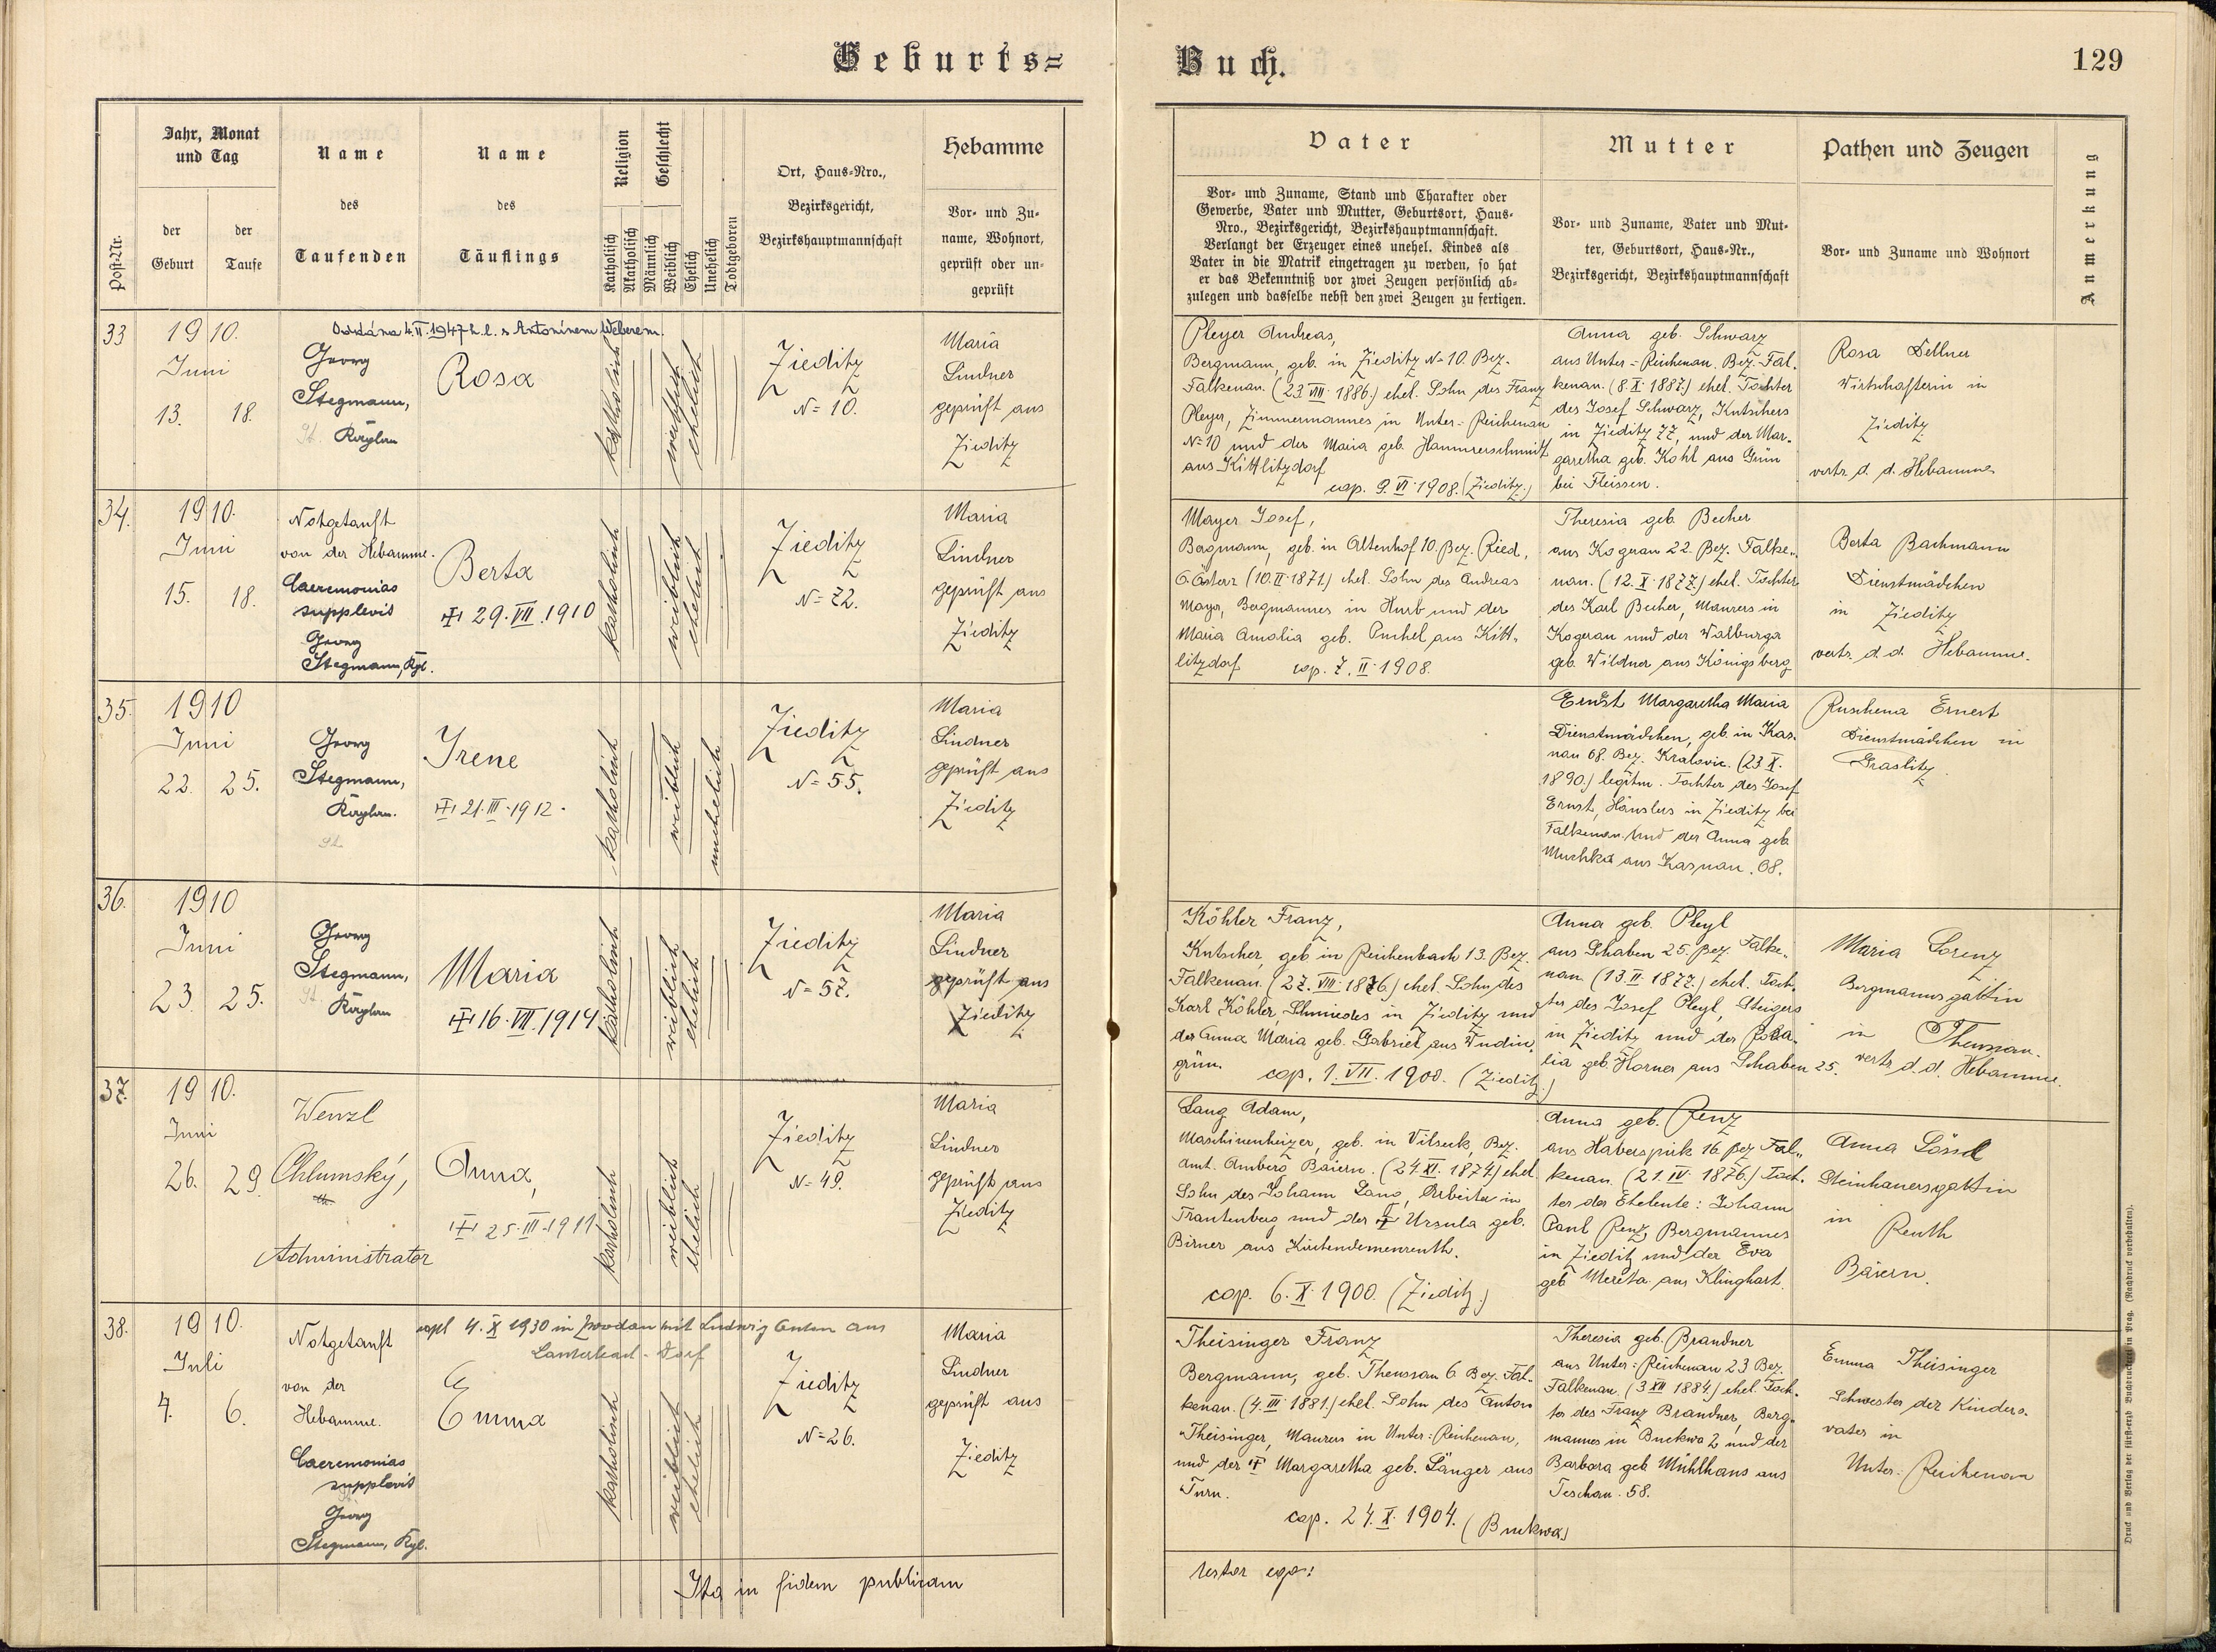 Geburts=
Buch.
129
Post-Nr.
Jahr, Monat
und Tag
der
Geburt
der
Taufe
Name
des
Taufenden
Name
des
Täuflings
Religion
Katholisch
Akatholisch
Geschlecht
Männlich
Weiblich
Ehelich
Unehelich
Todtgeboren
Ort, Haus-Nro.,
Bezirksgericht,
Bezirkshauptmannschaft
Hebamme
Vor- und Zu-
name, Wohnort,
geprüft oder un-
geprüft
Vater
Vor- und Zuname, Stand und Charakter oder
Gewerbe, Vater und Mutter, Geburtsort, Haus-
Nro., Bezirksgericht, Bezirkshauptmannschaft.
Verlangt der Erzeuger eines unehel. Kindes als
Vater in die Matrik eingetragen zu werden, so hat
er das Bekenntniß vor zwei Zeugen persönlich ab-
zulegen und dasselbe nebst den zwei Zeugen zu fertigen.
Mutter
Vor- und Zuname, Vater und Mut-
ter, Geburtsort, Haus-Nr.,
Bezirksgericht, Bezirkshauptmannschaft
Pathen und Zeugen
Vor- und Zuname und Wohnort
Anmerkung
33
1910.
Juni
13. 18.
Oddána 4.II.1947 h.l. s Antonínem Weberem.
Georg
Stegmann,
Kaplan
Rosa
katholisch
weiblich
ehelich
Zieditz
N=10.
Maria
Lindner
geprüft aus
Zieditz
Pleyer Andreas,
Bergmann, geb. in Zieditz N=10. Bez.
Falkenau. (23.VIII.1886.) ehel. Sohn des Franz
Pleyer, Zimmermannes in Unter=Reichenau
N=10 und der Maria geb. Hammerschmidt
aus Kittlitzdorf
cop. 9.VI.1908. (Zieditz.)
Anna geb. Schwarz
aus Unter=Reichenau. Bez. Fal-
kenau. (8.X.1887.) ehel. Tochter
des Josef Schwarz, Kutschers
in Zieditz 77, und der Mar-
garetha geb. Kohl aus Grün
bei Fleissen.
Rosa Dellner
Wirtschafterin in
Zieditz
vertr. d. d. Hebamme
34.
1910.
Juni
15. 18.
Notgetauft
von der Hebamme.
Caeremonias
supplevit
Georg
Stegmann, Kpl.
Berta
29.VII.1910
katholisch
weiblich
ehelich
Zieditz
N=72.
Maria
Lindner
geprüft aus
Zieditz
Mayer Josef,
Bergmann, geb. in Altenhof 10. Bez. Ried,
O.Österr (10.II.1871.) ehel. Sohn des Andreas
Mayr, Bergmannes in Hub und der
Maria Amalia geb. Puchel aus Kitt-
litzdorf cop. 7.II.1908.
Theresia geb. Becher
aus Kogerau 22. Bez. Falke-
nau. (12.X.1877.) ehel. Tochter
des Karl Becher, Maurers in
Kogerau und der Walburga
geb. Wildner aus Königsberg
Berta Bachmann
Dienstmädchen
in Zieditz
vertr. d. d. Hebamme.
35.
1910
Juni
22. 25.
Georg
Stegmann,
Kaplan.
Irene
21.III.1912.
katholisch
weiblich
unehelich
Zieditz
N=55.
Maria
Lindner
geprüft aus
Zieditz
Ernst Margaretha Maria
Dienstmädchen, geb. in Kas-
nau 68. Bez. Kralovic. (23.X.
1890.) legitm. Tochter des Josef
Ernst, Häuslers in Zieditz bei
Falkenau und der Anna geb.
Muchka aus Kasnau. 68.
Ruschena Ernest
Dienstmädchen in
Graslitz.
36.
1910
Juni
23. 25.
Georg
Stegmann,
Kaplan
Maria
16.VII.1914
katholisch
weiblich
ehelich
Zieditz
N=57.
Maria
Lindner
geprüft aus
Zieditz
Köhler Franz,
Kutscher, geb. in Reichenbach 13. Bez.
Falkenau. (27.VIII.1876.) ehel. Sohn des
Karl Köhler, Schmiedes in Zieditz und
der Anna Maria geb. Gabriel aus Wudin-
grün. cop. 1.VII.1900. (Zieditz.)
Anna geb. Pleyl
aus Schaben 25. Bez. Falke-
nau. (13.II.1877.) ehel. Toch-
ter des Josef Pleyl, Steigers
in Zieditz und der Rosa-
lia geb. Horner aus Schaben 25.
Maria Lorenz
Bergmannsgattin
in Theussau.
vertr. d. d. Hebamme.
37.
1910.
Juni
26. 29.
Wenzl
Chlumský,
Administrator
Anna,
25.III.1911
katholisch
weiblich
ehelich
Zieditz
N=49.
Maria
Lindner
geprüft aus
Zieditz
Lang Adam,
Maschinenheizer, geb. in Vilseck, Bez.
Amt. Amberg Baiern. (24.XI.1874.) ehel.
Sohn des Johann Lang, Arbeiter in
Trautenberg und der † Ursula geb.
Birner aus Kirchendemenreuth.
cop. 6.X.1900. (Zieditz.)
Anna geb. Renz
aus Haberspirk 16. Bez. Fal-
kenau. (21.IV.1876.) Toch-
ter der Eheleute: Johann
Paul Renz, Bergmannes
in Zieditz und der Eva
geb. Merita aus Klinghart.
Anna Lössl
Steinhauersgattin
in Reuth
Baiern.
38.
1910.
Juli
4. 6.
Notgetauft
von der
Hebamme.
Caeremonias
supplevit
Georg
Stegmann, Kpl.
copl 4.X 1930 in Zwodau mit Ludwig Anton aus
Lauterbach-Dorf
Emma
katholisch
weiblich
ehelich
Zieditz
N=26.
Maria
Lindner
geprüft aus
Zieditz
Theisinger Franz
Bergmann, geb. Theussau 6. Bez. Fal-
kenau. (4.III.1881.) ehel. Sohn des Anton
Theisinger, Maurers in Unter=Reichenau,
und der † Margaretha geb. Länger aus
Turn.
cop. 24.X.1904. (Buckwa)
Theresia geb. Brandner
aus Unter=Reichenau 23 Bez.
Falkenau. (3.XII 1884.) ehel. Toch-
ter des Franz Brandner, Berg-
mannes in Buckwa 2 und der
Barbara geb. Mühlhans aus
Teschau. 58.
Emma Theisinger
Schwester der Kinders-
vater in
Unter=Reichenau
Ita in fidem publicam
testor ego:
Druck und Verlag der fürsterzb. Buchdruckerei in Prag. (Nachdruck vorbehalten).